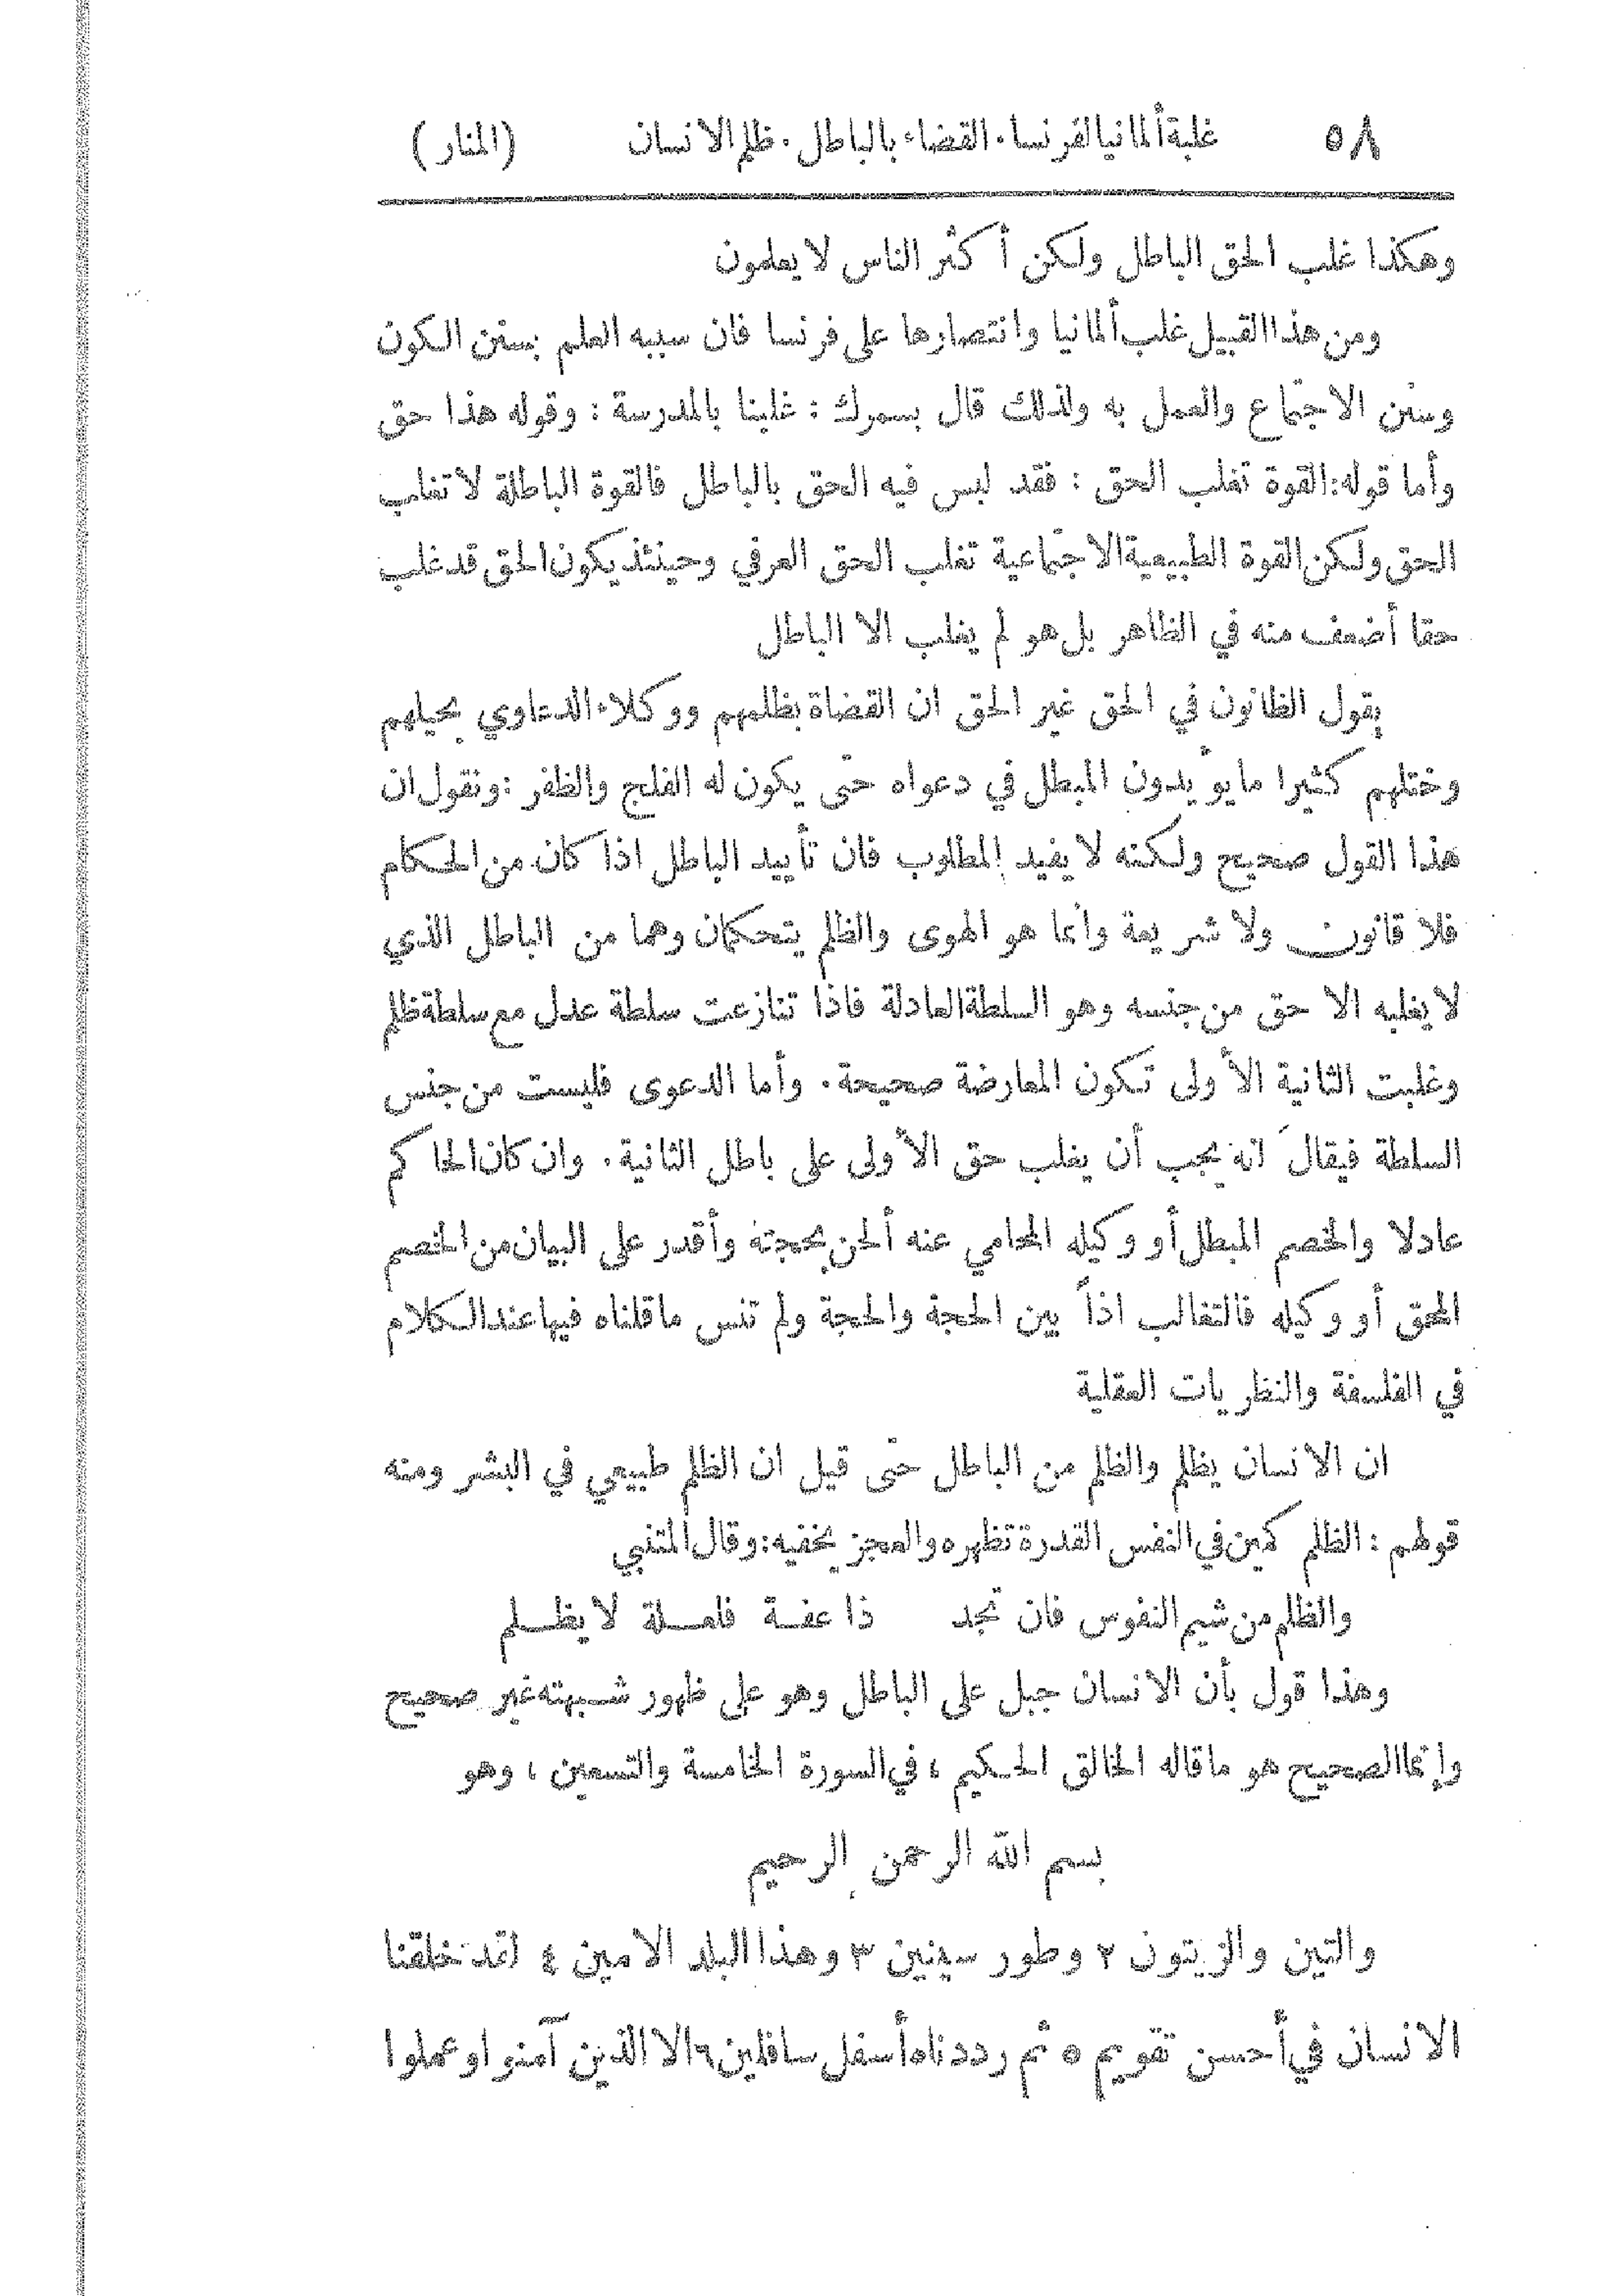 ٥٨ غلبة ألمانيا لفرنسا . القضاء بالباطل . ظلم الانسان (المنار)
وهكذا غلب الحق الباطل ولكن أكثر الناس لا يعلمون
ومن هذا القبيل غلب ألمانيا وانتصارها على فرنسا فان سببه العلم بسنن الكون
وسنن الاجتماع والعمل به ولذلك قال بسمرك : غلبنا بالمدرسة : وقوله هذا حق
وأما قوله: القوة تغلب الحق : فقد لبس فيه الحق بالباطل فالقوة الباطلة لا تغلب
الحق ولكن القوة الطبيعية الاجتماعية تغلب الحق العرفي وحينئذ يكون الحق قد غلب
حقا أضعف منه في الظاهر بل هو لم يغلب الا الباطل
يقول الظانون في الحق غير الحق ان القضاة بظلمهم ووكلاء الدعاوي بحيلهم
وختلهم كثيرا ما يؤيدون المبطل في دعواه حتى يكون له الفلج والظفر : ونقول ان
هذا القول صحيح ولكنه لا يفيد المطلوب فان تأييد الباطل اذا كان من الحكام
فلا قانون ولا شريعة وانما هو الهوى والظلم يتحكمان وهما من الباطل الذي
لا يغلبه الا حق من جنسه وهو السلطة العادلة فاذا تنازعت سلطة عدل مع سلطة ظلم
وغلبت الثانية الأولى تكون المعارضة صحيحة . وأما الدعوى فليست من جنس
السلطة فيقال انه يجب أن يغلب حق الأولى على باطل الثانية . وان كان الحاكم
عادلا والخصم المبطل أو وكيله المحامي عنه ألحن بحجته وأقدر على البيان من الخصم
المحق أو وكيله فالتغالب اذاً بين الحجة والحجة ولم تنس ما قلناه فيها عند الكلام
في الفلسفة والنظريات العقلية
ان الانسان يظلم والظلم من الباطل حتى قيل ان الظلم طبيعي في البشر ومنه
قولهم : الظلم كمين في النفس القدرة تظهره والعجز يخفيه : وقال المتنبي
والظلم من شيم النفوس فان تجد ذا عفة فلعلة لا يظلم
وهذا قول بأن الانسان جبل على الباطل وهو على ظهور شبهته غير صحيح
وإنما الصحيح هو ما قاله الخالق الحكيم ، في السورة الخامسة والتسعين ، وهو
بسم الله الرحمن الرحيم
والتين والزيتون ٢ وطور سينين ٣ وهذا البلد الامين ٤ لقد خلقنا
الانسان في أحسن تقويم ٥ ثم رددناه أسفل سافلين ٦ الا الذين آمنوا وعملوا